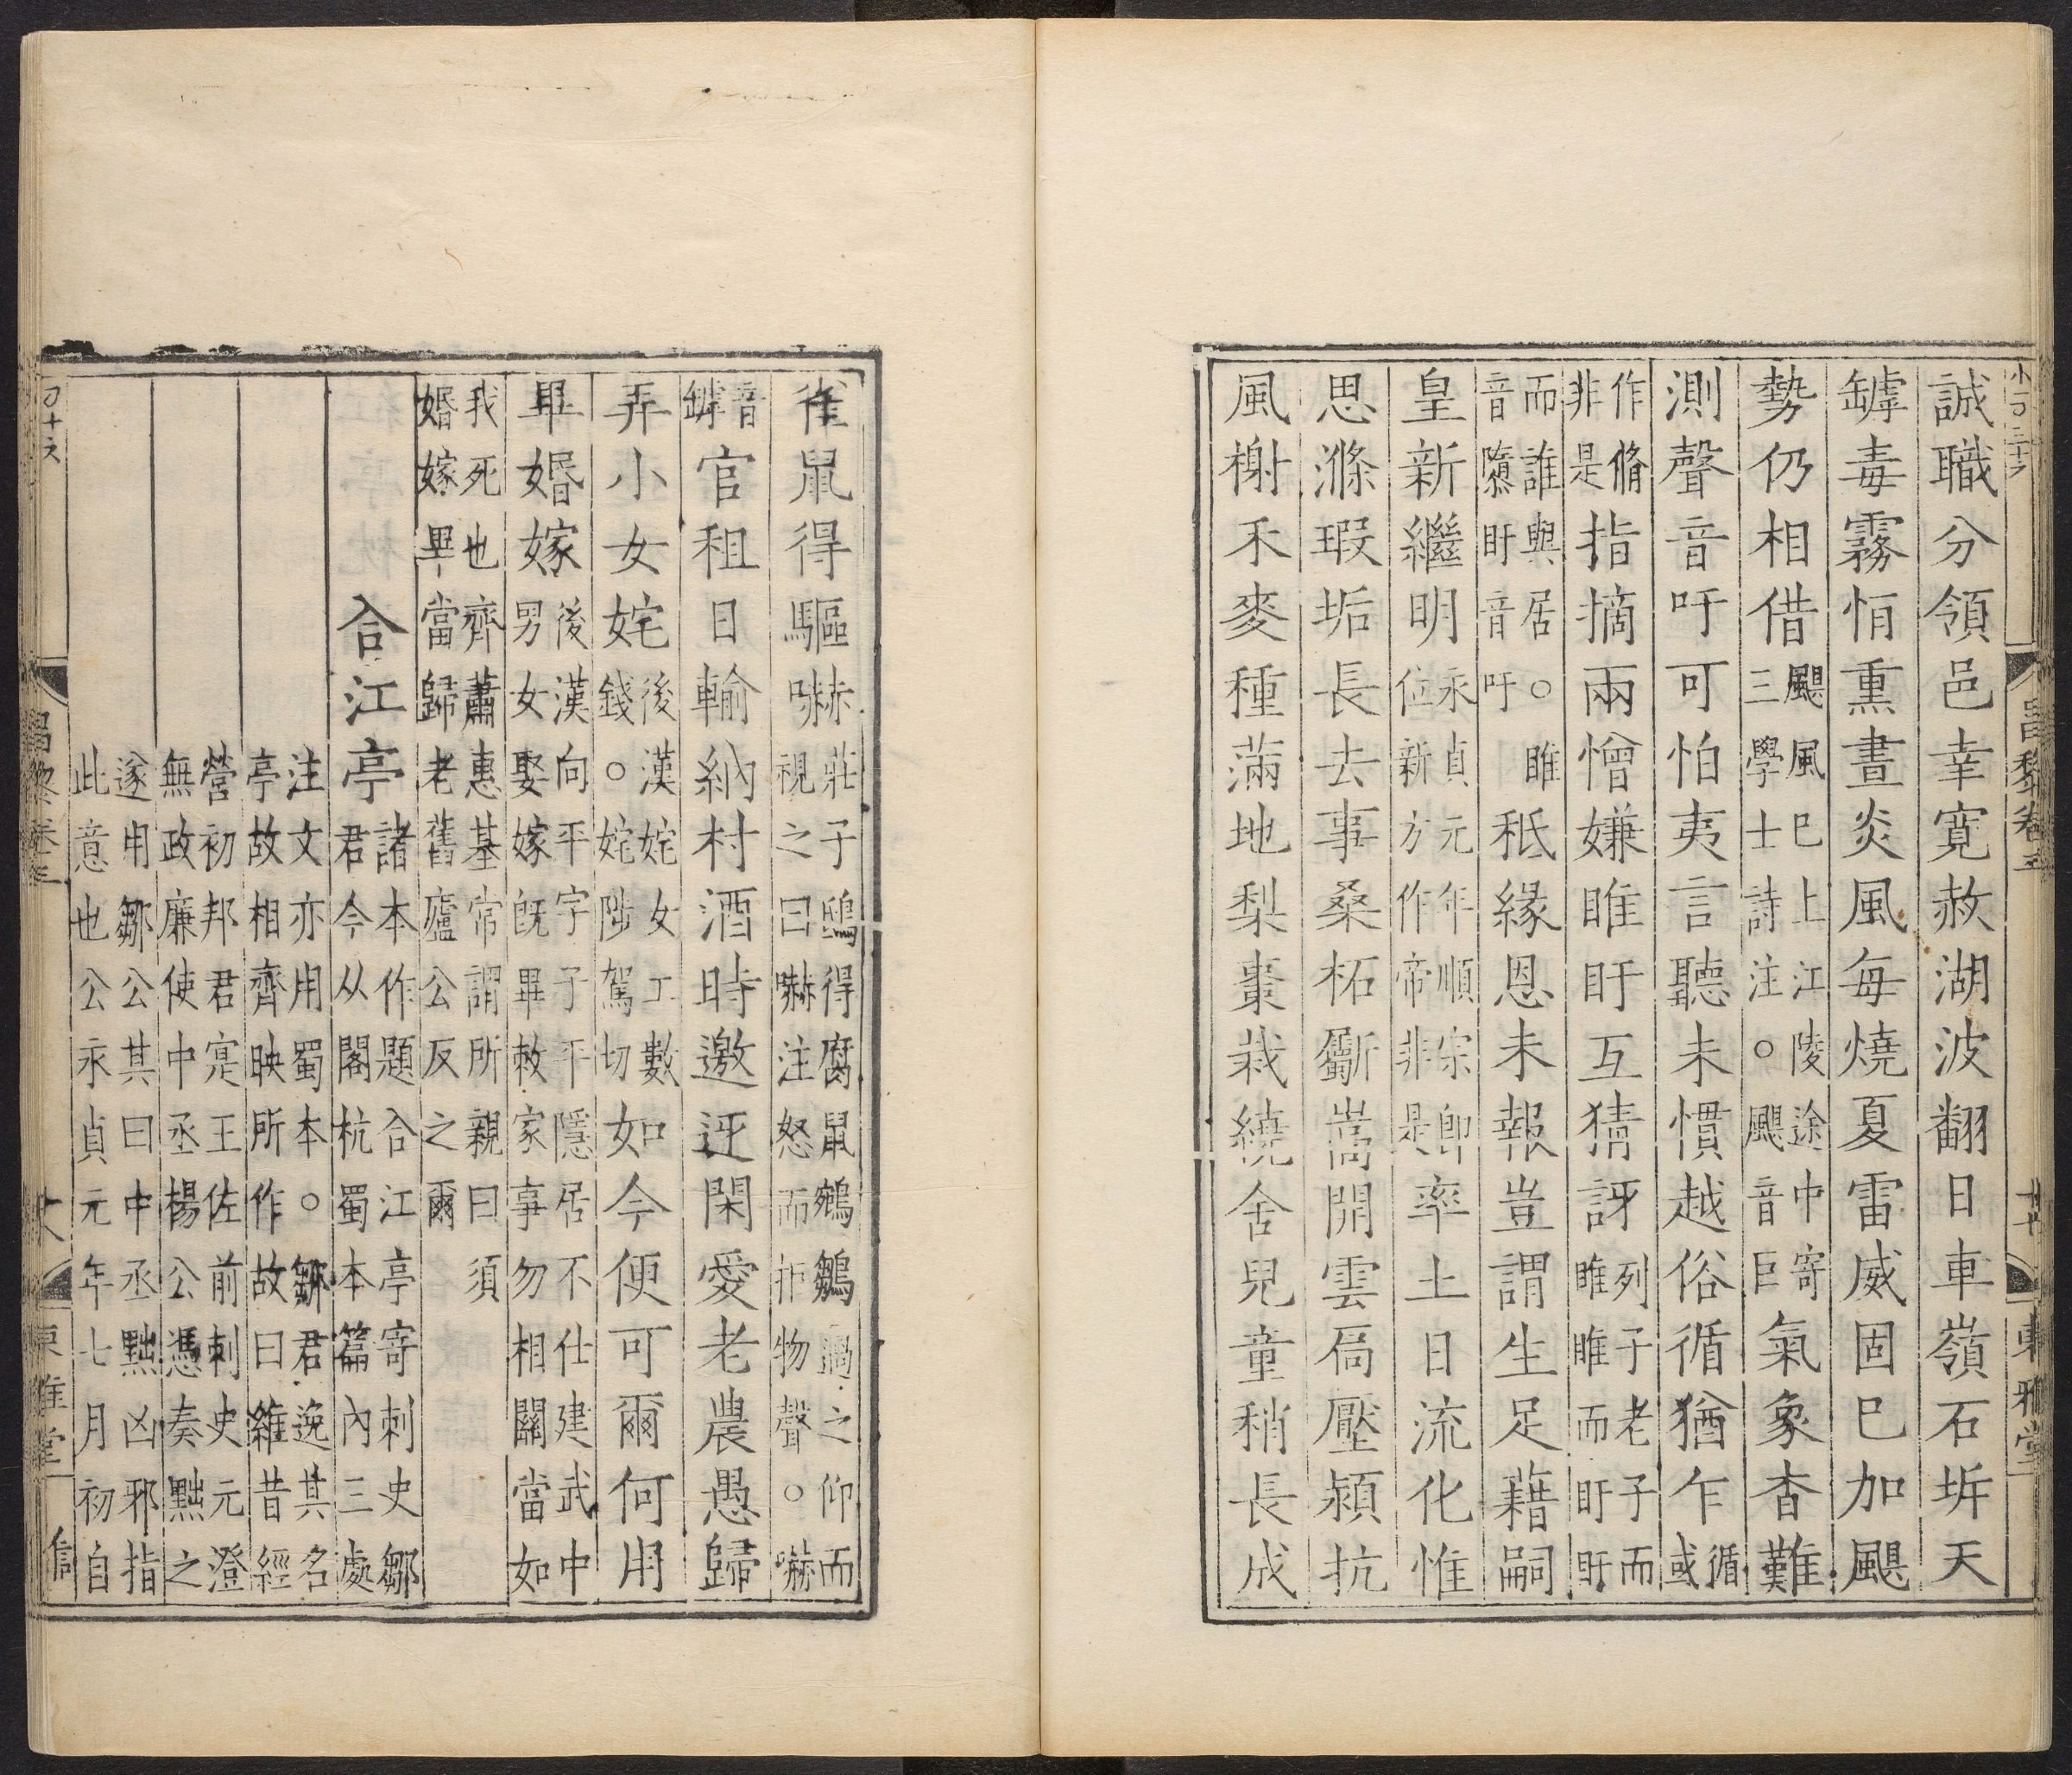 誠職分領邑幸寬赦湖波翻日車嶺石坼天
罅毒霧恒熏晝炎風每燒夏雷威固已加颶
勢仍相借颶風已上江陵途中寄
三學士詩注○颶音巨氣象杳難
測聲音吁可怕夷言聽未慣越俗循猶乍循
或
作脩
非是指摘兩憎嫌睢盱互猜訝列子老子而
睢睢而盱盱
而誰與居○睢
音隳盱音吁秪緣恩未報豈謂生足藉嗣
皇新繼明永貞元年順宗卽
位新方作帝非是率土日流化惟
思滌瑕垢長去事桑柘斸嵩開雲扃壓潁抗
風榭禾麥種滿地梨棗栽繞舍兒童稍長成
昌黎卷三
東雅堂
雀鼠得驅嚇莊子鴟得腐鼠鵷鶵過之仰而
視之曰嚇注怒而拒物聲○嚇
音
罅官租日輸納村酒時邀迓閑愛老農愚歸
弄小女姹後漢姹女工數
錢○姹陟駕切如今便可爾何用
畢婚嫁後漢向平字子平隱居不仕建武中
男女娶嫁旣畢敕家事勿相關當如
我死也齊蕭惠基常謂所親曰須
婚嫁畢當歸老舊廬公反之爾
合江亭諸本作題合江亭寄刺史鄒
君今从閣杭蜀本篇內三處
注文亦用蜀本○鄒君逸其名
亭故相齊映所作故曰維昔經
營初邦君寔王佐前刺史元澄
無政廉使中丞楊公憑奏黜之
遂用鄒公其曰中丞黜凶邪指
此意也公永貞元年七月初自
昌黎卷三
東雅堂